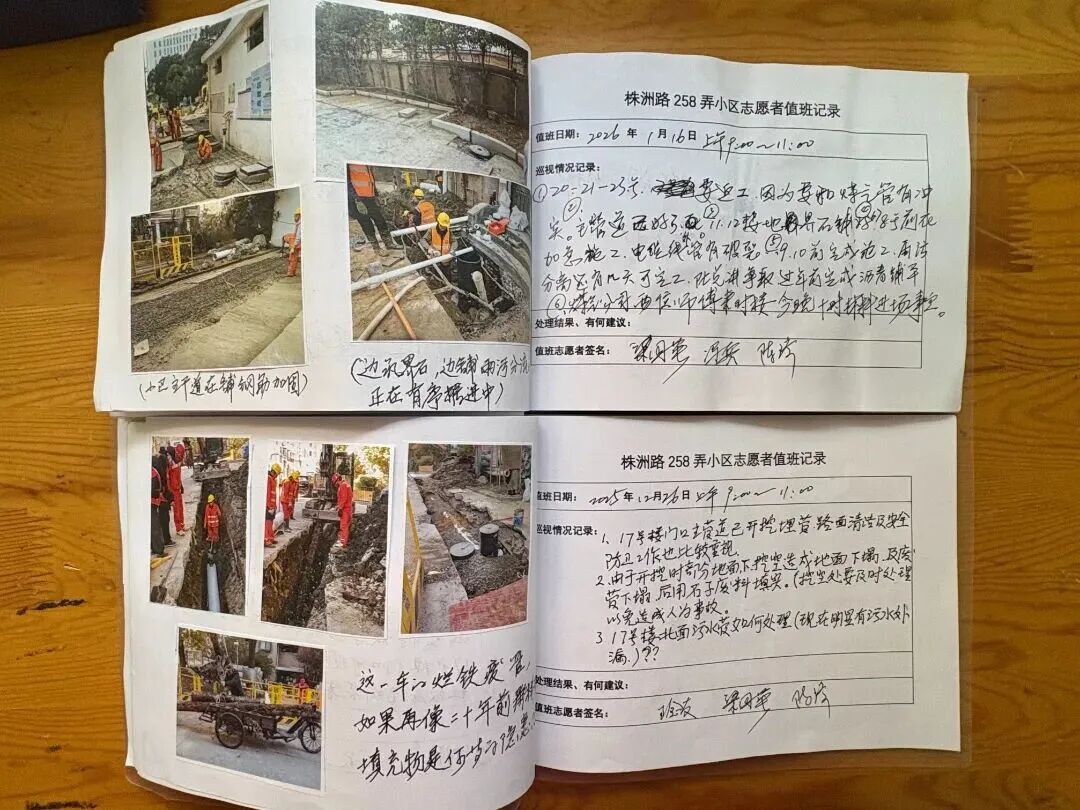 株洲路258弄小区志愿者值班记录
值班日期：2026年1月16日 上午9:00~11:00
巡视情况记录：
①20-21-23号 要返工 因为要和煤气管有冲
突。
加急施工、电缆线 有破裂 ⑤9.10前完成施工.雨污
分离还有几天可完工、 争取过年前完成沥青铺平
今晚十时材料进场事宜。
处理结果、有何建议：
值班志愿者签名：
(小区主干道在铺钢筋加固)
(边砌界石，边铺雨污分流
正在有序推进中)
株洲路258弄小区志愿者值班记录
值班日期：2025年12月26日 上午9:00~11:00
巡视情况记录：
1、17号楼门口主管道已开挖埋管路面清洁及安全
防卫工作也比较重视.
2.由于开挖时部分地面下挖空造成地面下塌，及废
管下塌，后用石子废料填实。(挖空处要及时处理
以免造成人为事故。
3、17号楼北面污水管如何处理(现在明显有污水外
漏.)??
处理结果、有何建议：
值班志愿者签名：
这一车的烂铁废管，
如果再像二十年前那样
填充物是何等的隐患